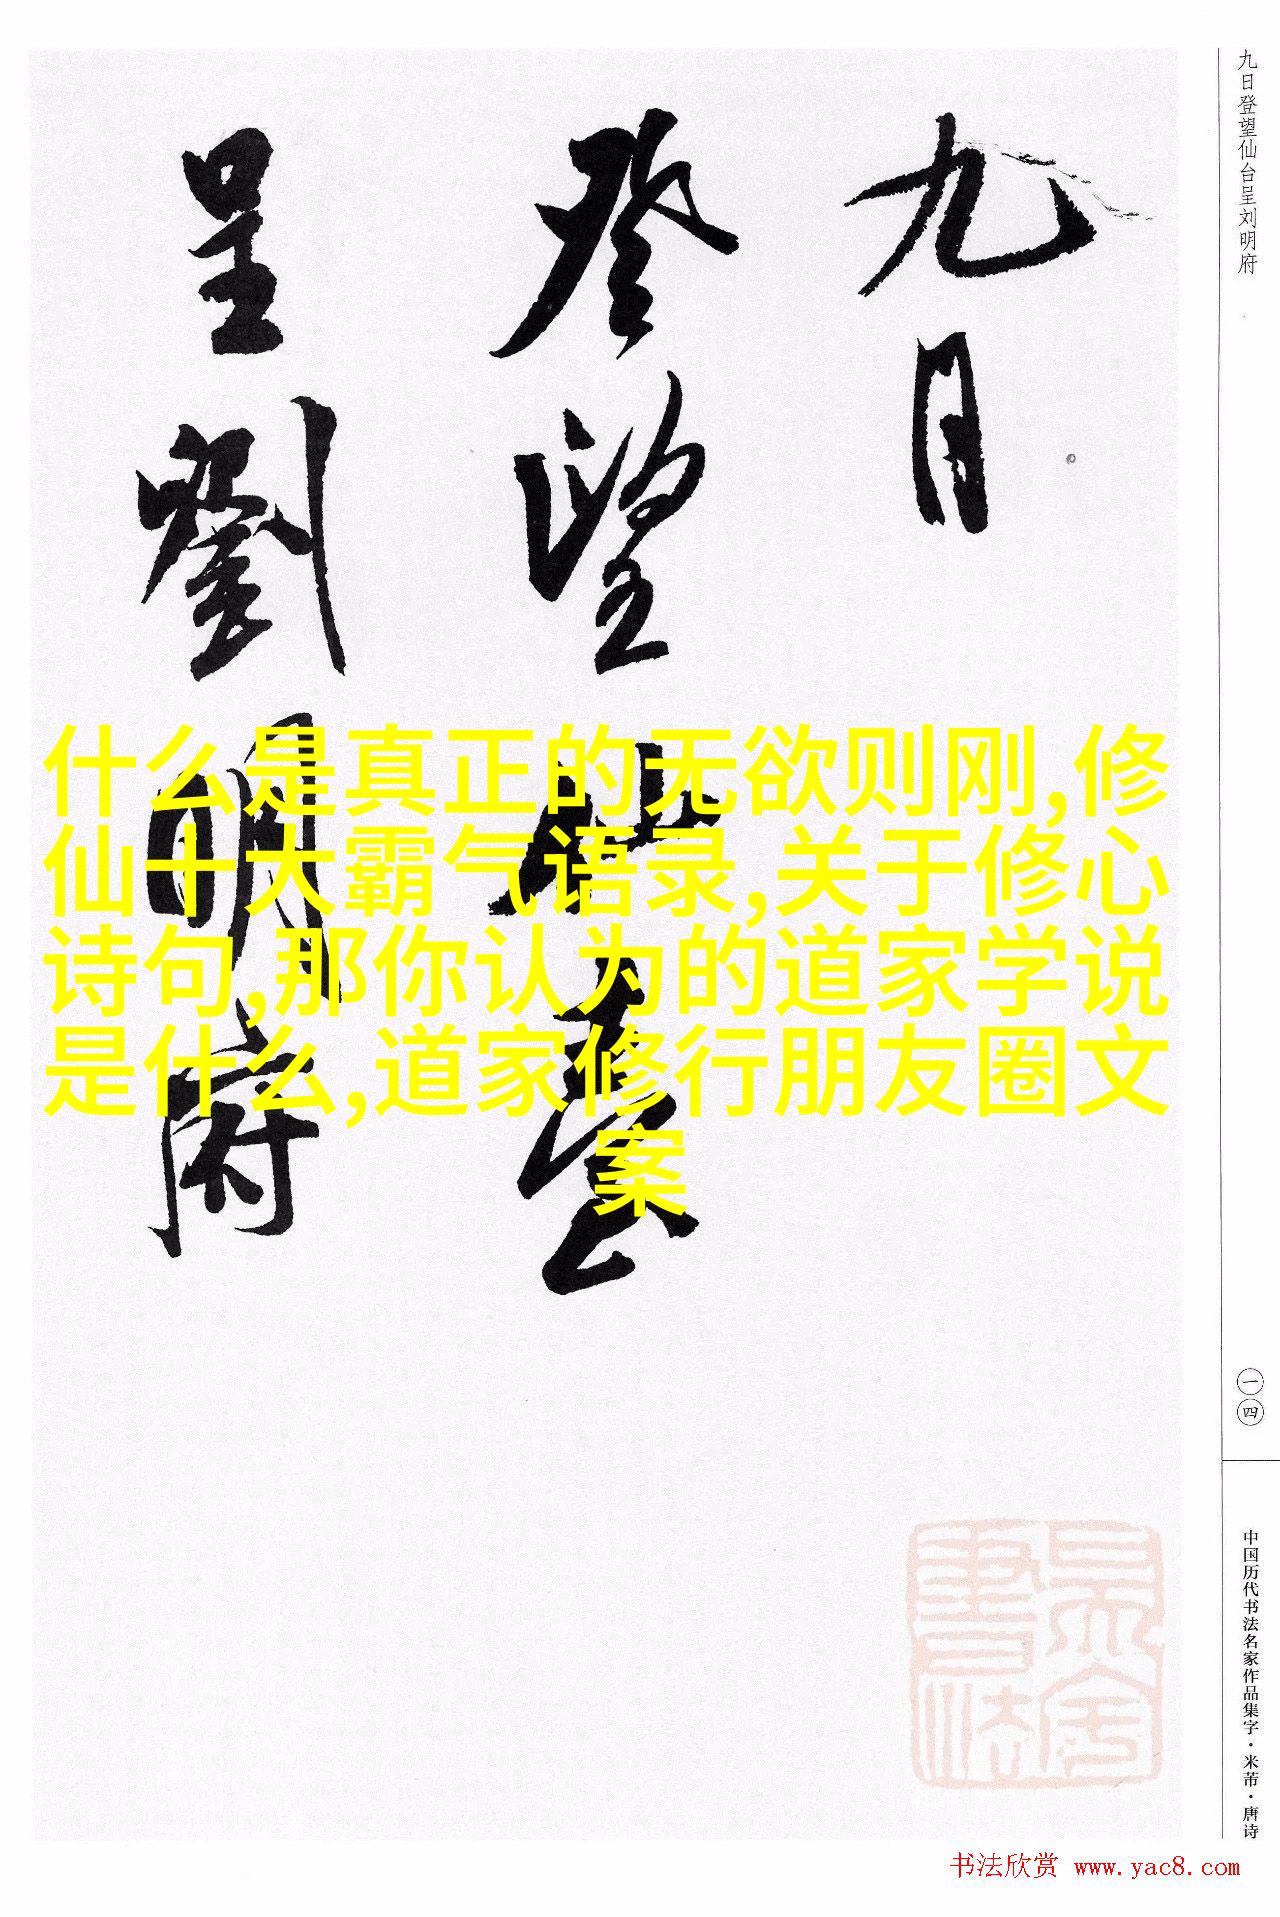 九日
登望仙台
呈劉明府
什么是真正的无欲则刚,修
仙十大霸气语录,关于修心
诗句,那你认为的道家学说
是什么,道家修行朋友圈文
案
九日登望仙台呈刘明府
一四
中国历代书法名家作品集字·米芾·唐诗
书法欣赏 www.yac8.com